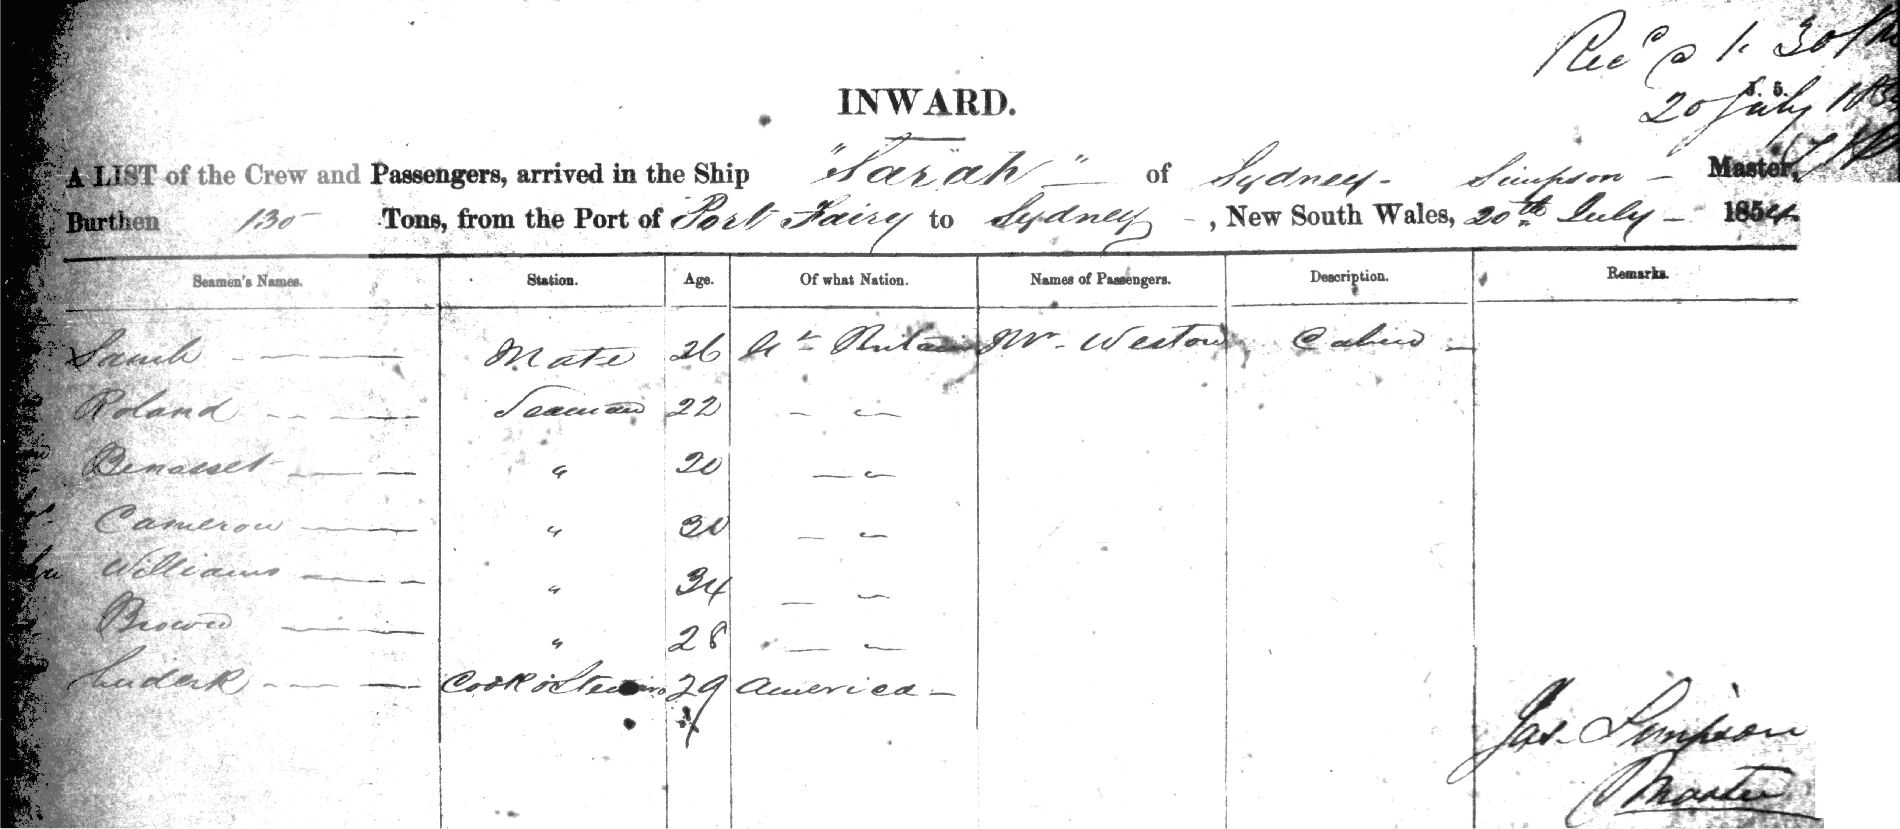 Recd @ 1.30 PM
20 July 185
J. 5.
INWARD.
A LIST of the Crew and Passengers, arrived in the Ship "Sarah" of Sydney - Simpson - Master,
Burthen 130 Tons, from the Port of Port Fairy to Sydney -, New South Wales, 20th July - 1854.
Seamen's Names. Station. Age. Of what Nation. Names of Passengers. Description. Remarks.
Mate 26 Gt Britain Mr. Weston Cabin
Roland Seaman 22 — "
" 20 — "
Cameron " 30 — "
Williams " 34 — "
Brown " 28 — "
Cook & Steward 29 America -
Jas. Simpson
Master